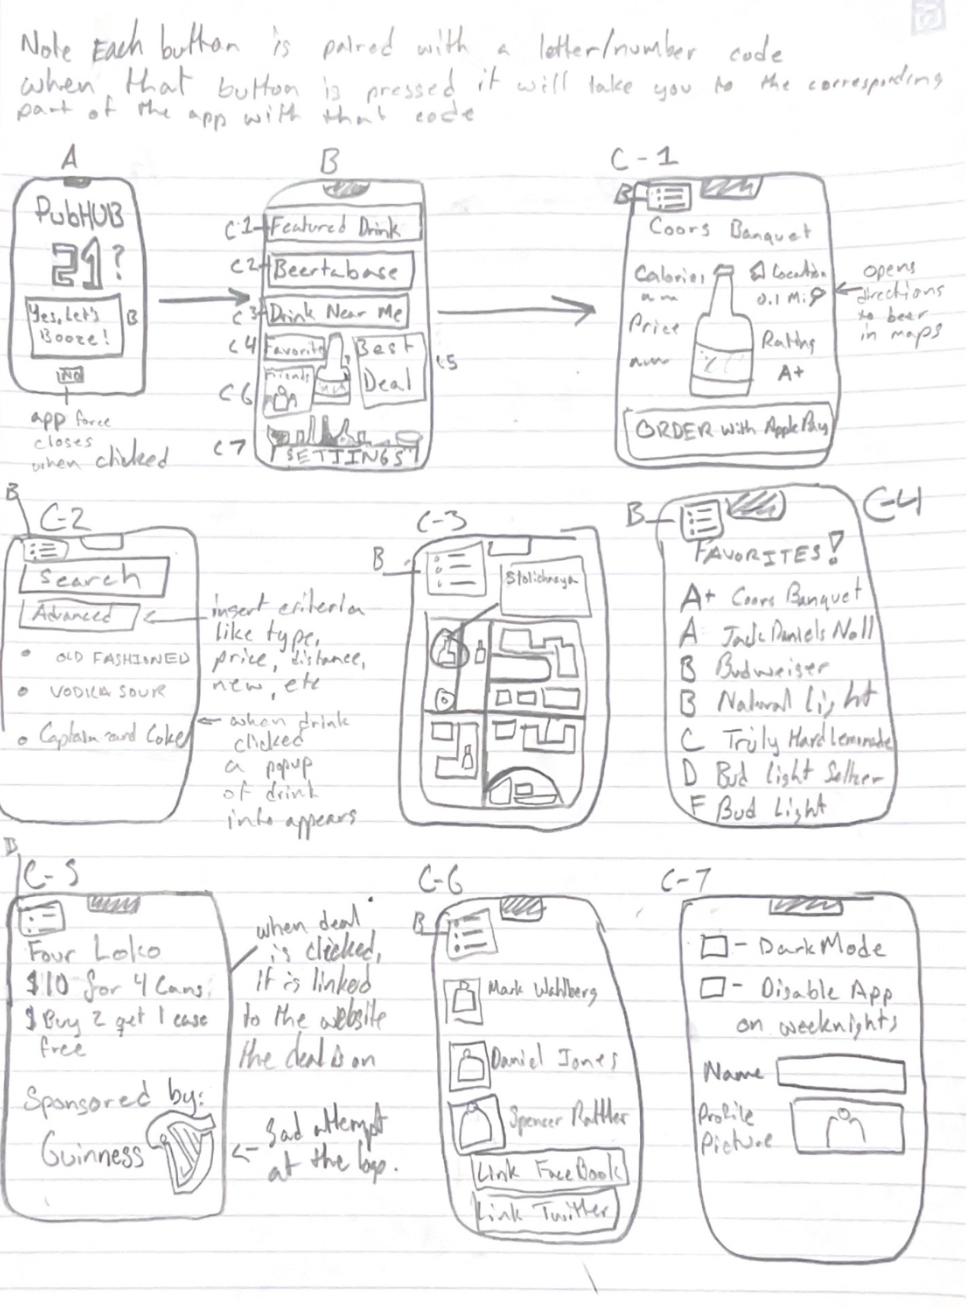 Note Each button is paired with a letter/number code
when that button is pressed it will take you to the corresponding
part of the app with that code
A
PubHUB
21?
Yes, Let's
Booze!
B
NO
app force
closes
when clicked
B
C-1
Featured Drink
C2
Beertabase
C3
Drink Near Me
C4
Favorite
Best
Deal
C5
Friends
C6
C7
SETTINGS
C-1
B
Coors Banquet
Calories
Location
0.1 Mi
Price
Rating
A+
ORDER with Apple Pay
opens
directions
to beer
in maps
B
C-2
Search
Advanced
• OLD FASHIONED
• VODKA SOUR
• Captain and Coke
insert criteria
like type,
price, distance,
new, etc
when drink
clicked
a popup
of drink
info appears
C-3
B
Stolichnaya
C-4
B
FAVORITES!
A+ Coors Banquet
A Jack Daniels No11
B Budweiser
B Natural Light
C Truly Hard Lemonade
D Bud Light Seltzer
F Bud Light
B
C-5
Four Loko
$10 for 4 Cans.
$ Buy 2 get 1 case
free
Sponsored by:
Guinness
when deal
is clicked,
it is linked
to the website
the deal is on
Sad attempt
at the logo.
C-6
B
Mark Wahlberg
Daniel Jones
Spencer Rattler
Link FaceBook
Link Twitter
C-7
- Dark Mode
- Disable App
on weeknights
Name
Profile
Picture